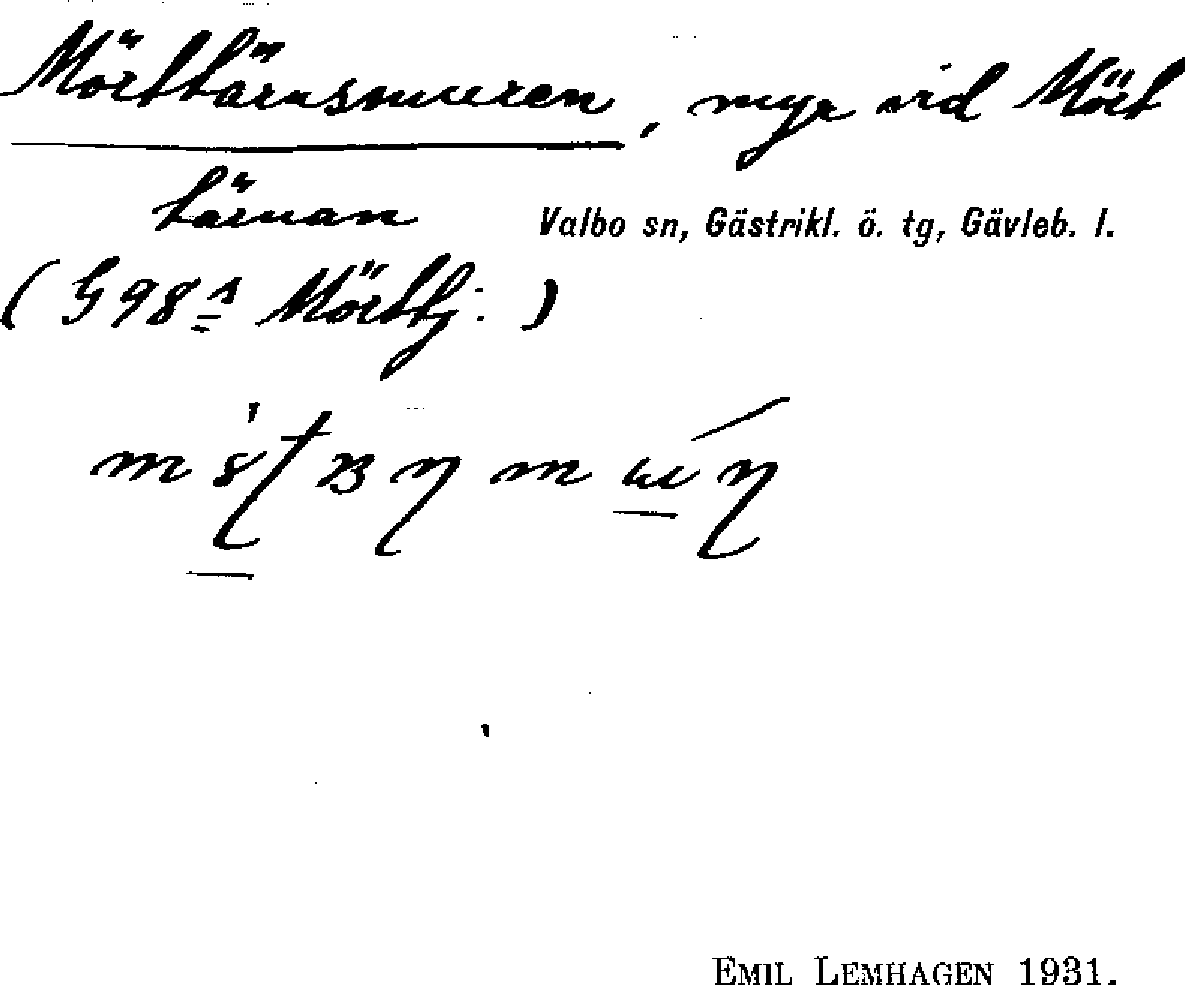 Mörttärnsmuren, myr vid Mört
tärnan Valbo sn, Gästrikl. ö. tg, Gävleb. l.
(G 98 Mörttj: )
EMIL LEMHAGEN 1931.